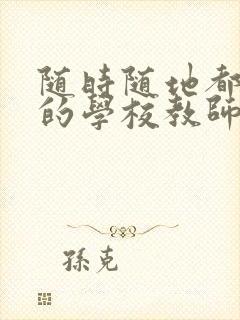 随時随地都
的學校教師
孫克